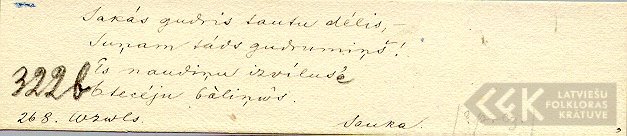 Sakás gudris tautu délis, —
Suņam táds gudrumiņš!
Es naudiņu izvílusé
3226
Atecéju báliņôs.
268. Wzwls. Sauka.
LATVIEŠU
FOLKLORAS
KRĀTUVE